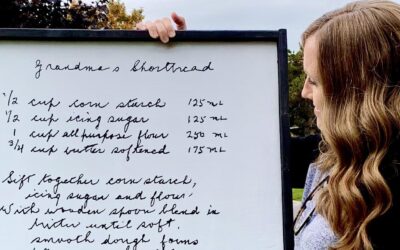 Grandma's Shortbread
1/2 cup corn starch 125 mL
1/2 cup icing sugar 125 mL
1 cup all purpose flour 250 mL
3/4 cup butter softened 175 mL
Sift together corn starch,
icing sugar and flour.
With wooden spoon blend in
butter until soft,
smooth dough forms